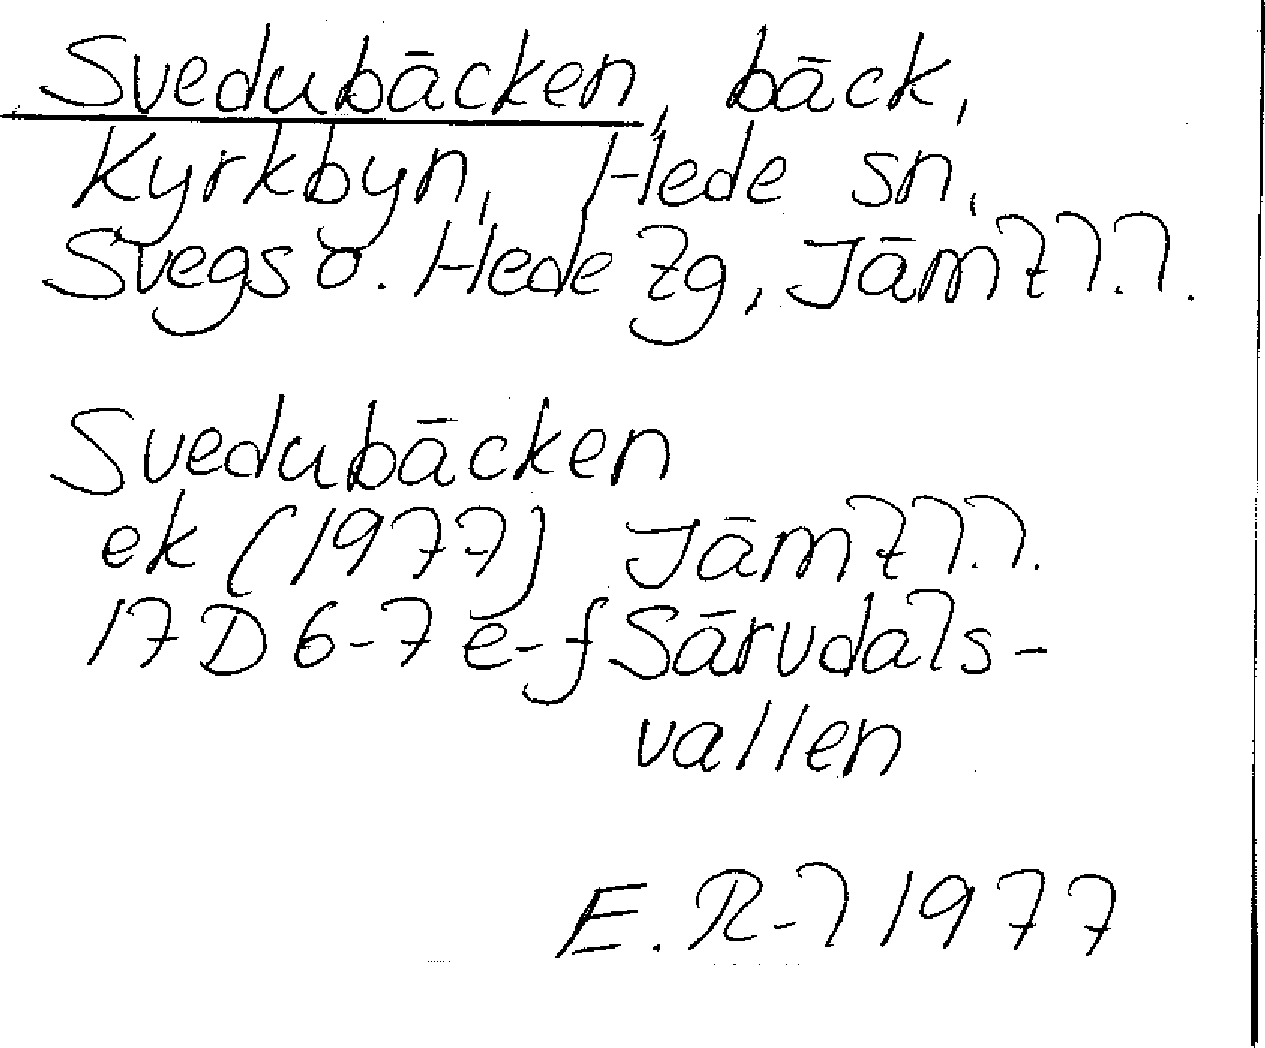 Svedubäcken, bäck,
Kyrkbyn, Hede sn,
Svegs o. Hede tg, Jämtl.l.
Svedubäcken
ek (1977) Jämtl.l.
17D 6-7 e-f Särvdals-
vallen
E. R-l 1977